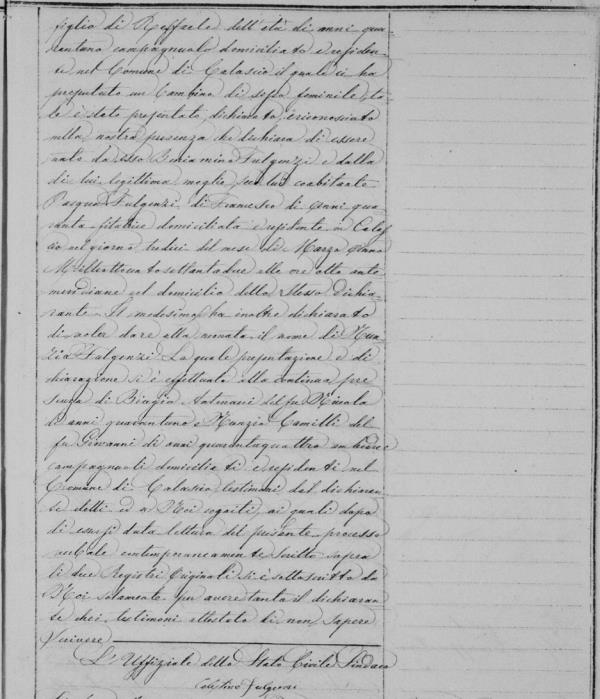 figlio di Raffaele dell'età di anni qua-
rantuno campagnuolo domiciliato e residen-
te nel Comune di Calascio il quale ci ha
presentato un bambino di sesso feminile, ta-
le è stato presentato, dichiarato, e riconosciato
nella nostra presenza che dichiara di essere
nato da esso Beniamino Fulgenzi e dalla
di lui legittima moglie seco lui coabitante
Pasqua Fulgenzi, di Francesco di anni qua-
ranta filatrice domiciliata e residente in Calas-
cio nel giorno tredici del mese di Marzo Anno
Milleottocentosettantadue alle ore otto ante-
meridiane nel domicilio dello stesso dichia-
rante. Il medesimo ha inoltre dichiarato
di voler dare alla neonata il nome di Nun-
zia Fulgenzi. La quale presentazione e di-
chiarazione si è effettuale alla continua pre
senza di Biagio del fu Nicola
di anni quarantuno e Nunzio Camilli del
fu Giovanni di anni quarantaquattro ambidue
campagnuoli domiciliati e residenti nel
Comune di Calascio testimoni dal dichiaran-
te detti ed a Noi cogniti, ai quali dopo
di essersi data lettura del presente processo
verbale contemporaneamente scritto sopra
li due Registri Originali si è sottoscritto da
Noi solamente per avere tanto il dichiaran-
te che i testimoni attestato di non sapere
scrivere
L'Uffiziale dello Stato Civile Sindaco
Celestino Fulgenzi